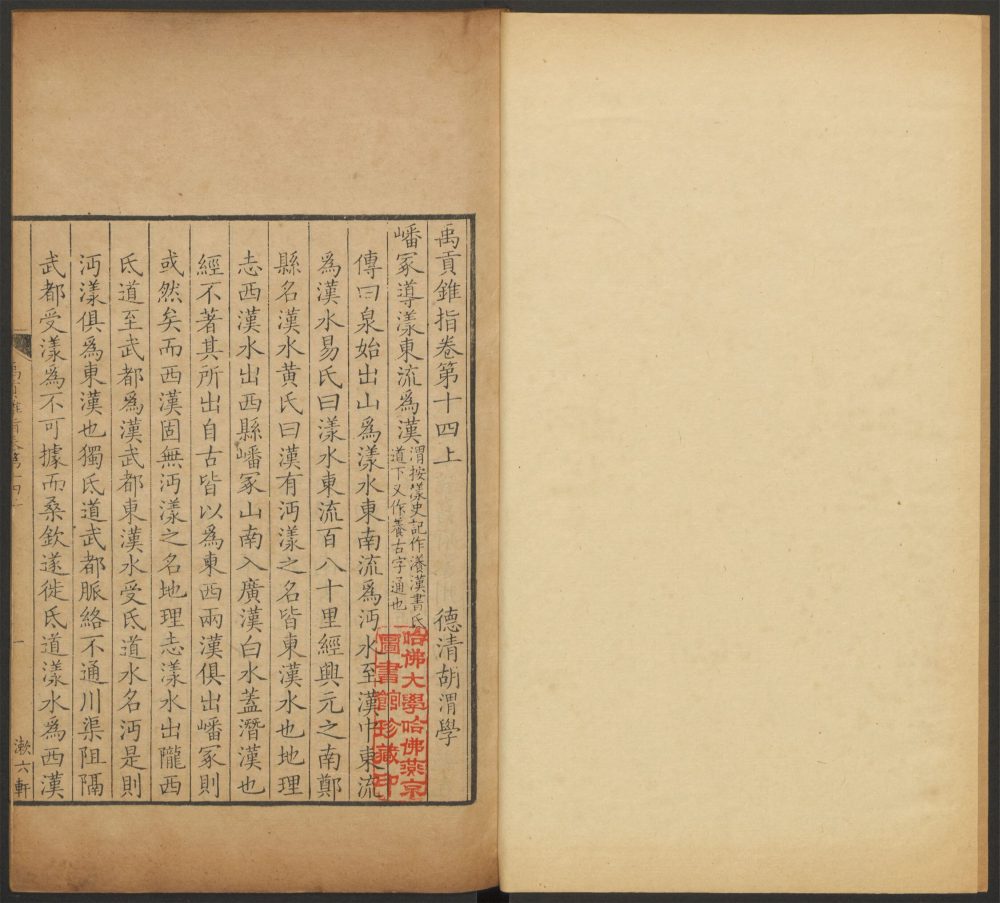 禹貢錐指卷第十四上
德清胡渭學
嶓冢導漾東流爲漢
渭按漾史記作瀁漢書氐
道下又作養古字通也
傳曰泉始出山爲漾水東南流爲沔水至漢中東流
爲漢水易氏曰漾水東流百八十里經興元之南鄭
縣名漢水黄氏曰漢有沔漾之名皆東漢水也地理
志西漢水出西縣嶓冢山南入廣漢白水蓋潛漢也
經不著其所出自古皆以爲東西兩漢俱出嶓冢則
或然矣而西漢固無沔漾之名地理志漾水出隴西
氐道至武都爲漢武都東漢水受氐道水名沔是則
沔漾俱爲東漢也獨氐道武都脈絡不通川渠阻隔
武都受漾爲不可據而桑欽遂徙氐道漾水爲西漢
禹貢錐指卷第十四上
一
漱六軒
哈佛大學哈佛燕京
圖書館珍藏印